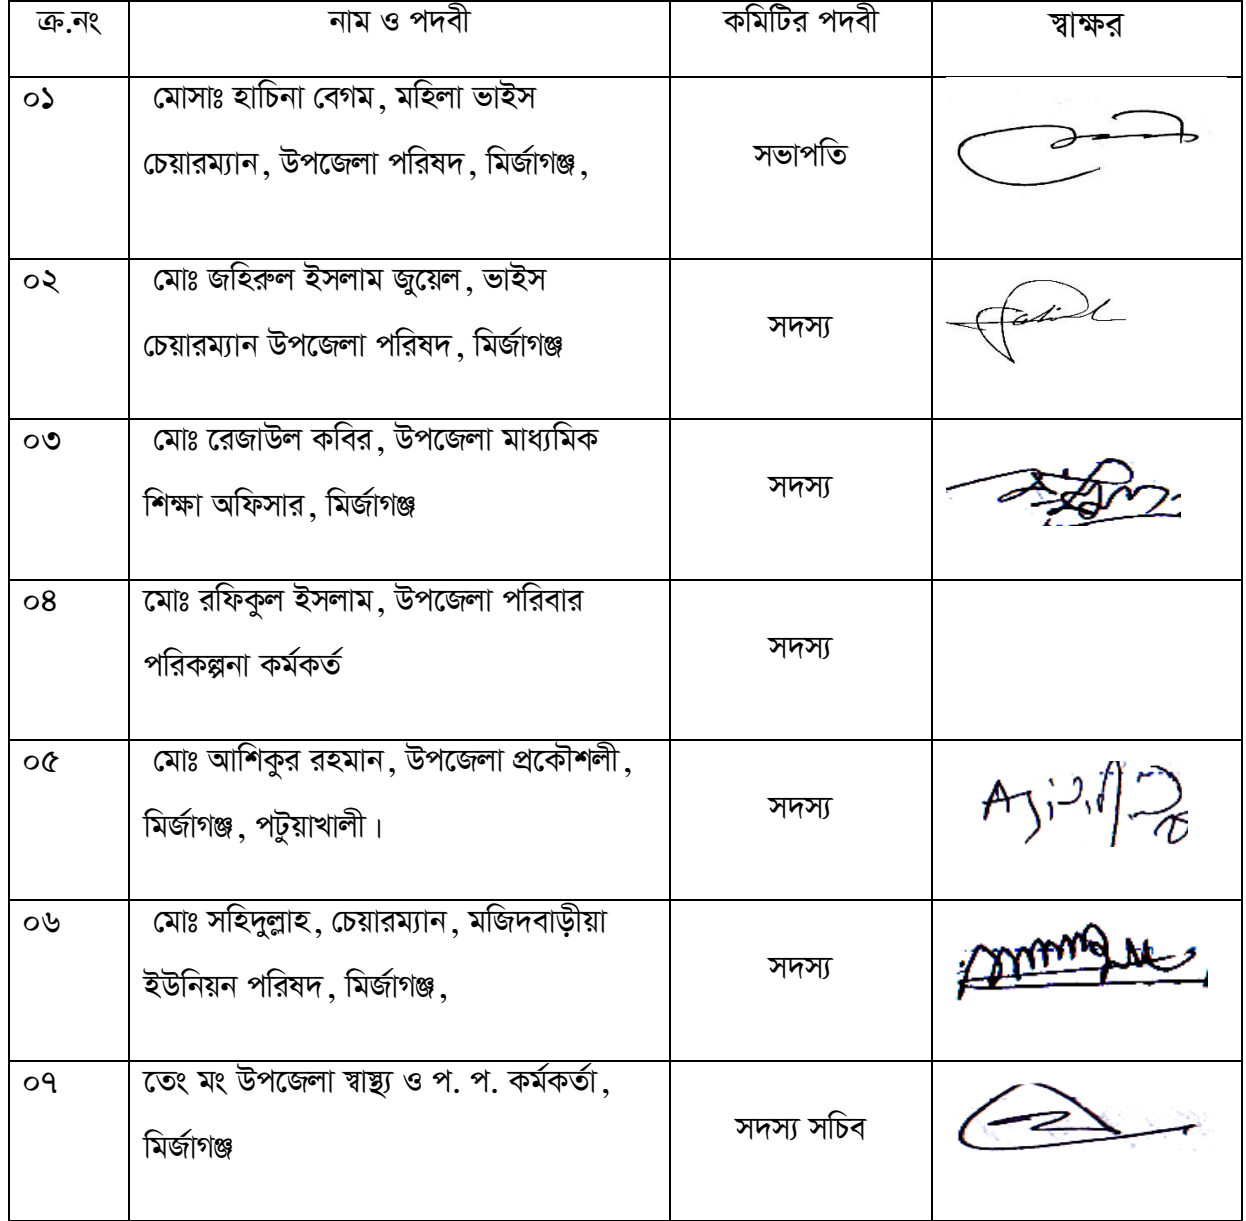 ক্র.নং নাম ও পদবী কমিটির পদবী স্বাক্ষর
০১ মোসাঃ হাচিনা বেগম, মহিলা ভাইস
চেয়ারম্যান, উপজেলা পরিষদ, মির্জাগঞ্জ, সভাপতি
০২ মোঃ জহিরুল ইসলাম জুয়েল, ভাইস
চেয়ারম্যান উপজেলা পরিষদ, মির্জাগঞ্জ সদস্য
০৩ মোঃ রেজাউল কবির, উপজেলা মাধ্যমিক
শিক্ষা অফিসার, মির্জাগঞ্জ সদস্য
০৪ মোঃ রফিকুল ইসলাম, উপজেলা পরিবার
পরিকল্পনা কর্মকর্ত সদস্য
০৫ মোঃ আশিকুর রহমান, উপজেলা প্রকৌশলী,
মির্জাগঞ্জ, পটুয়াখালী। সদস্য
০৬ মোঃ সহিদুল্লাহ, চেয়ারম্যান, মজিদবাড়ীয়া
ইউনিয়ন পরিষদ, মির্জাগঞ্জ, সদস্য
০৭ তেং মং উপজেলা স্বাস্থ্য ও প. প. কর্মকর্তা,
মির্জাগঞ্জ সদস্য সচিব